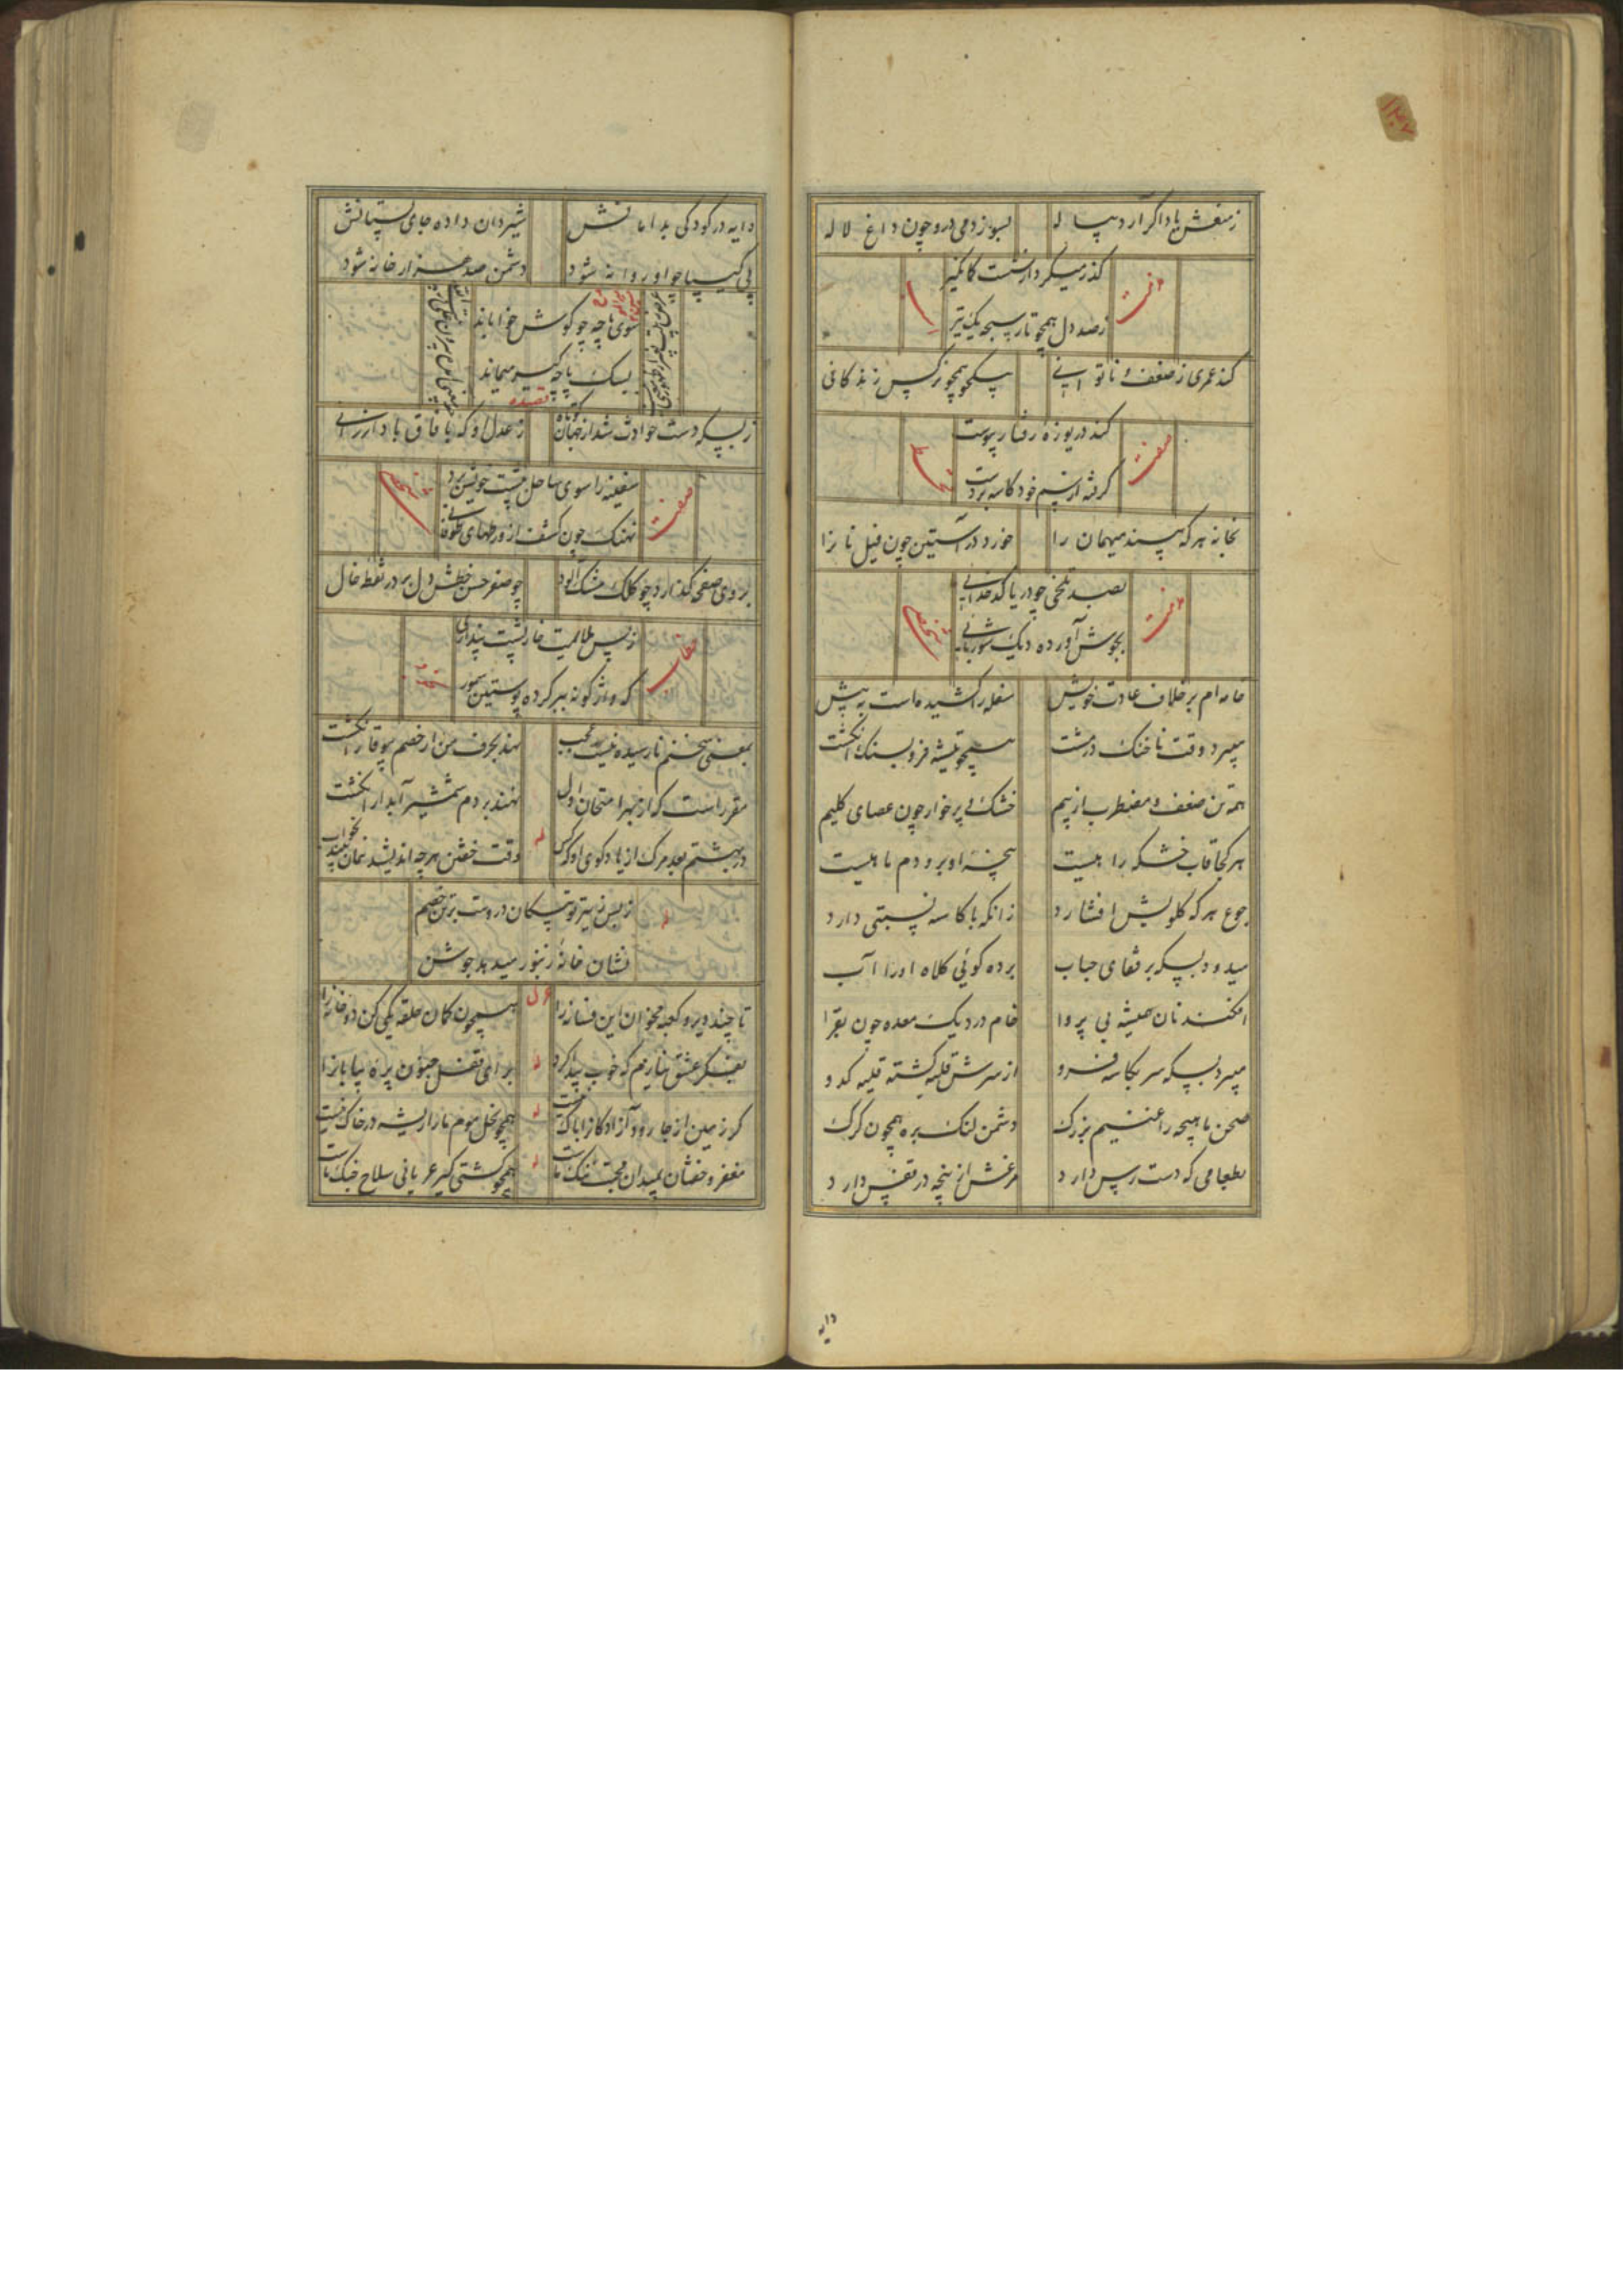 ز منعش یاد اگر آرد پیاله
بسوزد می درو چون داغ لاله
صفت
گذر میکرد از شست کمانگیر
ز صد دل همچو تار سبحه یک تیر
کند عمری ز ضعف و ناتوانی
بیکجو همچو نرگس زندگانی
صفت
کند دریوزه رفتار پیوست
گرفته از سم خود کاسه بر دست
بخانه هر که بیند میهمان را
خورد در آستین چون فیل نان را
صفت
بصد تلخی چو دریا کدخدایی
بجوش آورده دیک شوربایی
خامه ام بر خلاف عادت خویش
سفله را کشیده است به پیش
میبرد وقت ناخنک در مشت
همچو تیشه فرو بسنک انکشت
همه تن ضعف و مضطرب از بیم
خشک لی پر خوار چون عصای کلیم
هر کجا قاب خشکه را هیست
پنجه او برو دم ماهیست
جوع هر که گلویش افشارد
زانکه با کاسه نسبتی دارد
میدود بسکه بر قفای حباب
برده کوئی کلاه او را آب
افکند نان همیشه بی پروا
خام در دیک معده چون بقرا
میبرد بسکه سر بکاسه فرو
از سرش قلیه کشته قلیه کدو
صحن ماهیچه را غنیم بزرک
دشمن لنک بره همچون کرک
بطعامی که دست رس دارد
مرغش از پنجه در قفس دارد
دایه
دایه در کودکی بدامانش
شیردان داده جای پستانش
پی کیپا چو او روانه شود
دشمن صد هزار خانه شود
سوی پاچه چو کوش خواباند
بسک پاچه گیر میماند
قصیده
ز بسکه دست حوادث شد از جهان کوتاه
ز عدل او که بآفاق باد ارزانی
صفت
سفینه را سوی ساحل بپشت خویش برد
نهنک چون کشف از ورطهای طوفانی
بروی صفحه گذارد چو کلک مشک آلود
چو صفر حسن خطش دل برد ز نقطه خال
ز پس ملایمت خارپشت پنداری
که واژگونه ببر کرده پوستین سمور
بمغنی سخنم نارسیده نیست عجب
نهند بحرف من ار خصم بیوقار انکشت
مقرر است که از بهر امتحان اول
نهند بر دم شمشیر آبدار انکشت
در بهشتم بعد مرک از یاد کوی او که کس
وقت خفتن هر چه اندیشد همان بیند بخواب
ز بس ز تیر تو پیکان دروست بر تن خصم
نشان خانه زنبور میدهد جوشن
غزل
تا چند دیر و کعبه مخوان این فسانه را
همچون کمان حلقه یکی کن دو خانه را
له
بفیگر عشق بنازیم که خوب پیدا کرد
برای قفل جنون پره بیابان را
له
کر زمین از جا رود آزادگان را باک نیست
همچو نخل موم ما را ریشه در خاک نیست
له
مغفر و خفتان بمیدان محبت ننک ماست
همچو کشتی گیر عریانی سلاح جنک ماست